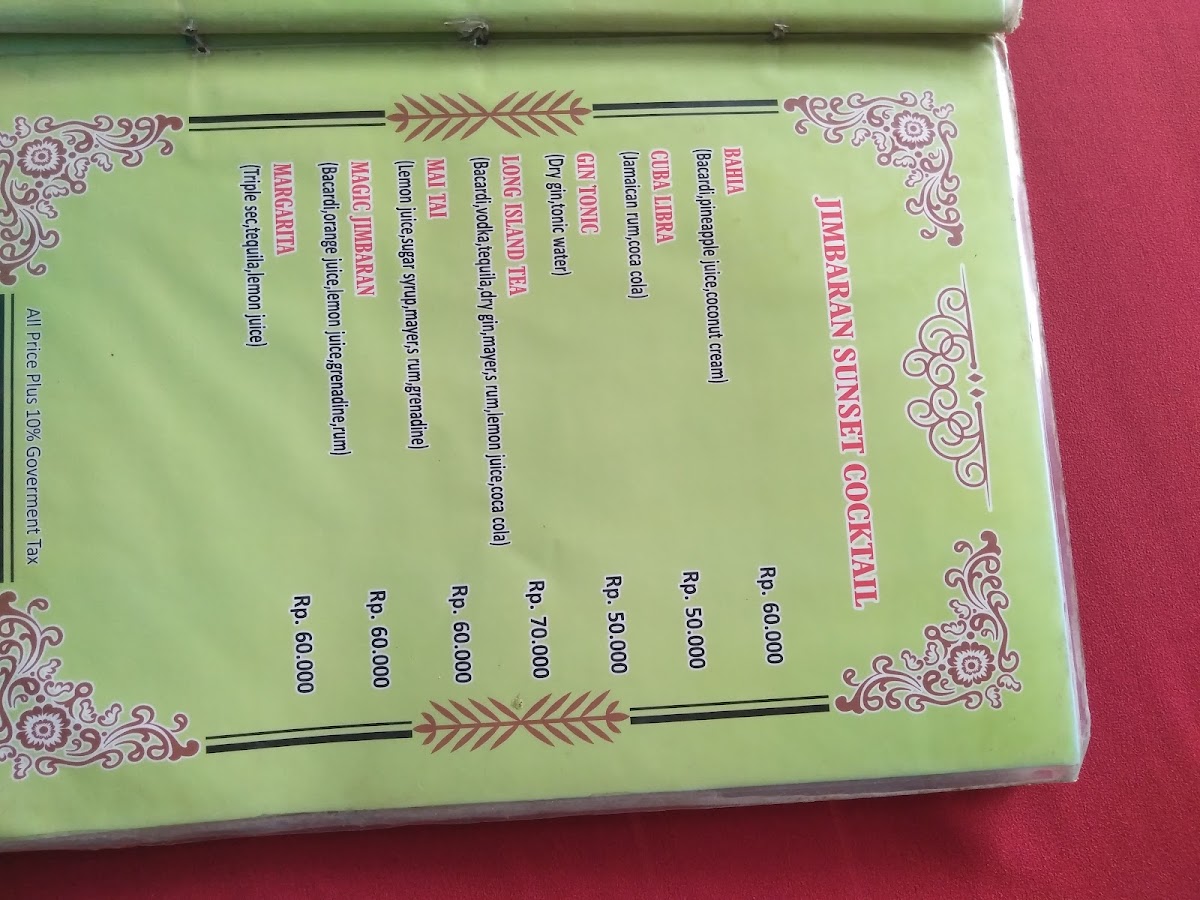 JIMBARAN SUNSET COCKTAIL
BAHIA Rp. 60.000
(Bacardi,pineapple juice,coconut cream)
CUBA LIBRA Rp. 50.000
(Jamaican rum,coca cola)
GIN TONIC Rp. 50.000
(Dry gin,tonic water)
LONG ISLAND TEA Rp. 70.000
(Bacardi,vodka,tequila,dry gin,mayer,s rum,lemon juice,coca cola)
MAI TAI Rp. 60.000
(Lemon juice,sugar syrup,mayer,s rum,grenadine)
MAGIC JIMBARAN Rp. 60.000
(Bacardi,orange juice,lemon juice,grenadine,rum)
MARGARITA Rp. 60.000
(Triple sec,tequila,lemon juice)
All Price Plus 10% Goverment Tax